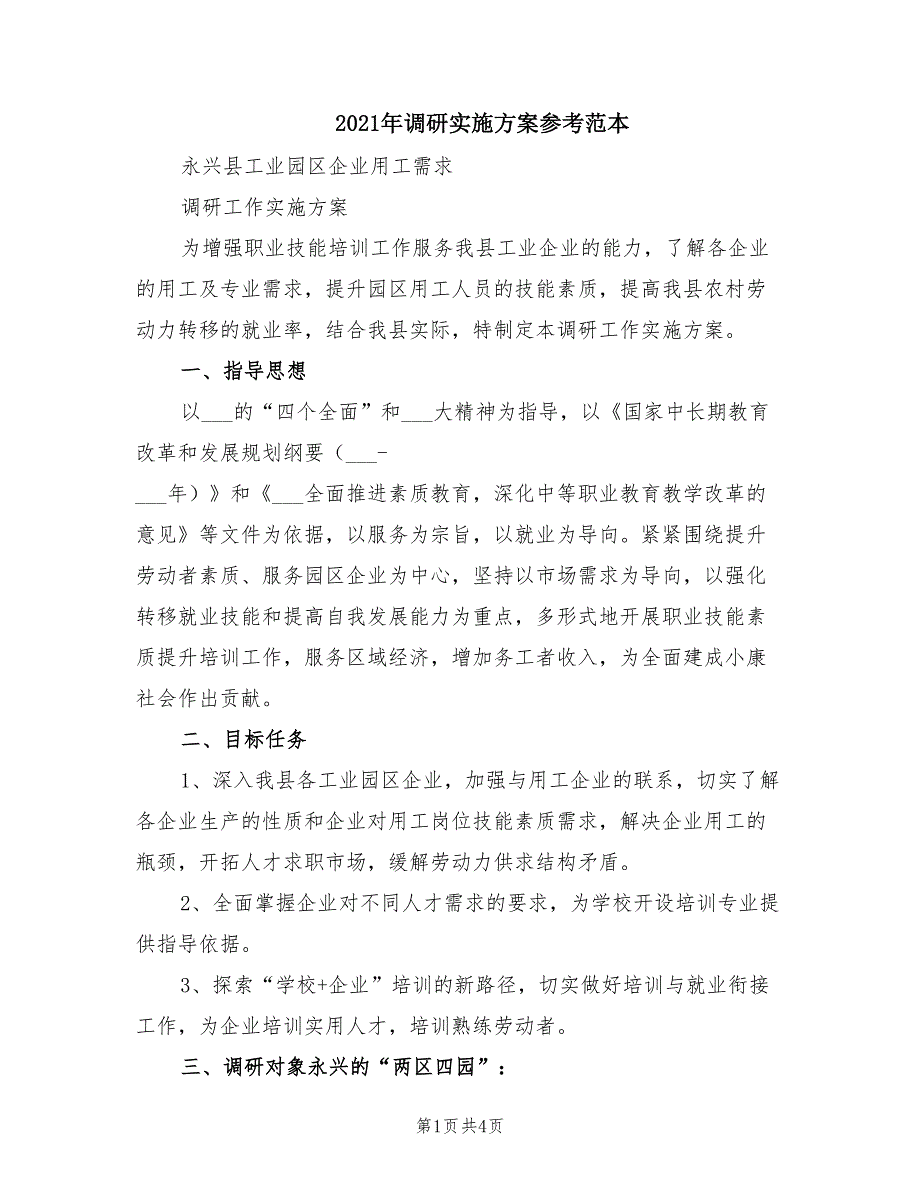 2021年调研实施方案参考范本
永兴县工业园区企业用工需求
调研工作实施方案
为增强职业技能培训工作服务我县工业企业的能力，了解各企业
的用工及专业需求，提升园区用工人员的技能素质，提高我县农村劳
动力转移的就业率，结合我县实际，特制定本调研工作实施方案。
一、指导思想
以___的“四个全面”和___大精神为指导，以《国家中长期教育
改革和发展规划纲要（___-
___年）》和《___全面推进素质教育，深化中等职业教育教学改革的
意见》等文件为依据，以服务为宗旨，以就业为导向。紧紧围绕提升
劳动者素质、服务园区企业为中心，坚持以市场需求为导向，以强化
转移就业技能和提高自我发展能力为重点，多形式地开展职业技能素
质提升培训工作，服务区域经济，增加务工者收入，为全面建成小康
社会作出贡献。
二、目标任务
1、深入我县各工业园区企业，加强与用工企业的联系，切实了解
各企业生产的性质和企业对用工岗位技能素质需求，解决企业用工的
瓶颈，开拓人才求职市场，缓解劳动力供求结构矛盾。
2、全面掌握企业对不同人才需求的要求，为学校开设培训专业提
供指导依据。
3、探索“学校+企业”培训的新路径，切实做好培训与就业衔接
工作，为企业培训实用人才，培训熟练劳动者。
三、调研对象永兴的“两区四园”：
第1页共4页